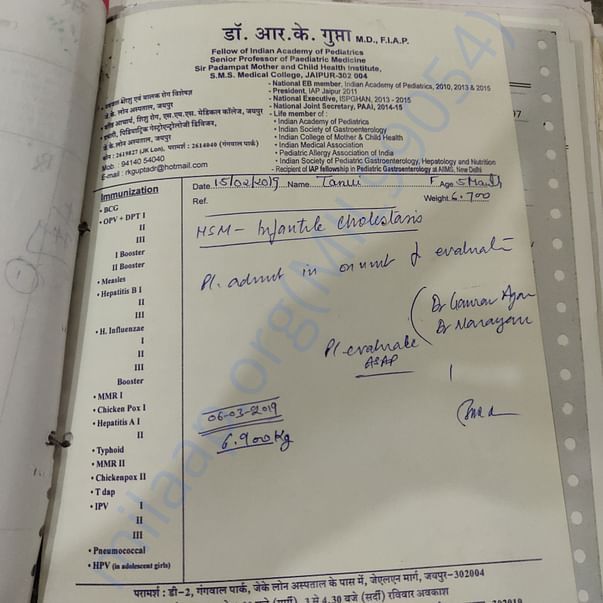 डॉ. आर.के. गुप्ता M.D., F.I.A.P.
Fellow of Indian Academy of Pediatrics
Senior Professor of Paediatric Medicine
Sir Padampat Mother and Child Health Institute,
S.M.S. Medical College, JAIPUR-302 004
- National EB member, Indian Academy of Pediatrics, 2010, 2013 & 2015
- President, IAP Jaipur 2011
- National Executive, ISPGHAN, 2013 - 2015
- National Joint Secretary, PAAI, 2014-15
- Life member of :
• Indian Academy of Pediatrics
• Indian Society of Gastroenterology
• Indian College of Mother & Child Health
• Indian Medical Association
• Pediatric Allergy Association of India
• Indian Society of Pediatric Gastroenterology, Hepatology and Nutrition
- Recipient of IAP fellowship in Pediatric Gastroenterology at AIIMS, New Delhi
शिशु एवं बालक रोग विशेषज्ञ
जे.के. लोन अस्पताल, जयपुर
आचार्य, शिशु रोग, एस.एम.एस. मेडिकल कॉलेज, जयपुर
पिडियाट्रिक गेस्ट्रोएन्ट्रोलोजी डिविजन,
जे.के. लोन अस्पताल, जयपुर
फोन : 2619827 (JK Lon), परामर्श : 2614040 (गंगवाल पार्क)
Mob : 94140 54040
E-mail : rkguptadr@hotmail.com
Date 15/02/2019 Name Age 5 Weight 6.700
Ref.
HSM - Infantile Cholestasis
Pl. admit in & evaluate
Dr Gaurav
Dr Narayan
Pl evaluate
ASAP
06-03-2019
6.900 Kg
Immunization
• BCG
• OPV + DPT I
II
III
I Booster
II Booster
• Measles
• Hepatitis B I
II
III
• H. Influenzae
I
II
III
Booster
• MMR I
• Chicken Pox I
• Hepatitis A I
II
• Typhoid
• MMR II
• Chickenpox II
• T dap
• IPV I
II
III
• Pneumococcal
• HPV (in adolescent girls)
परामर्श : डी-2, गंगवाल पार्क, जेके लोन अस्पताल के पास में, जेएलएन मार्ग, जयपुर-302004
3 से 4.30 बजे (सर्दी) रविवार अवकाश
milaap.org(MIL99054)